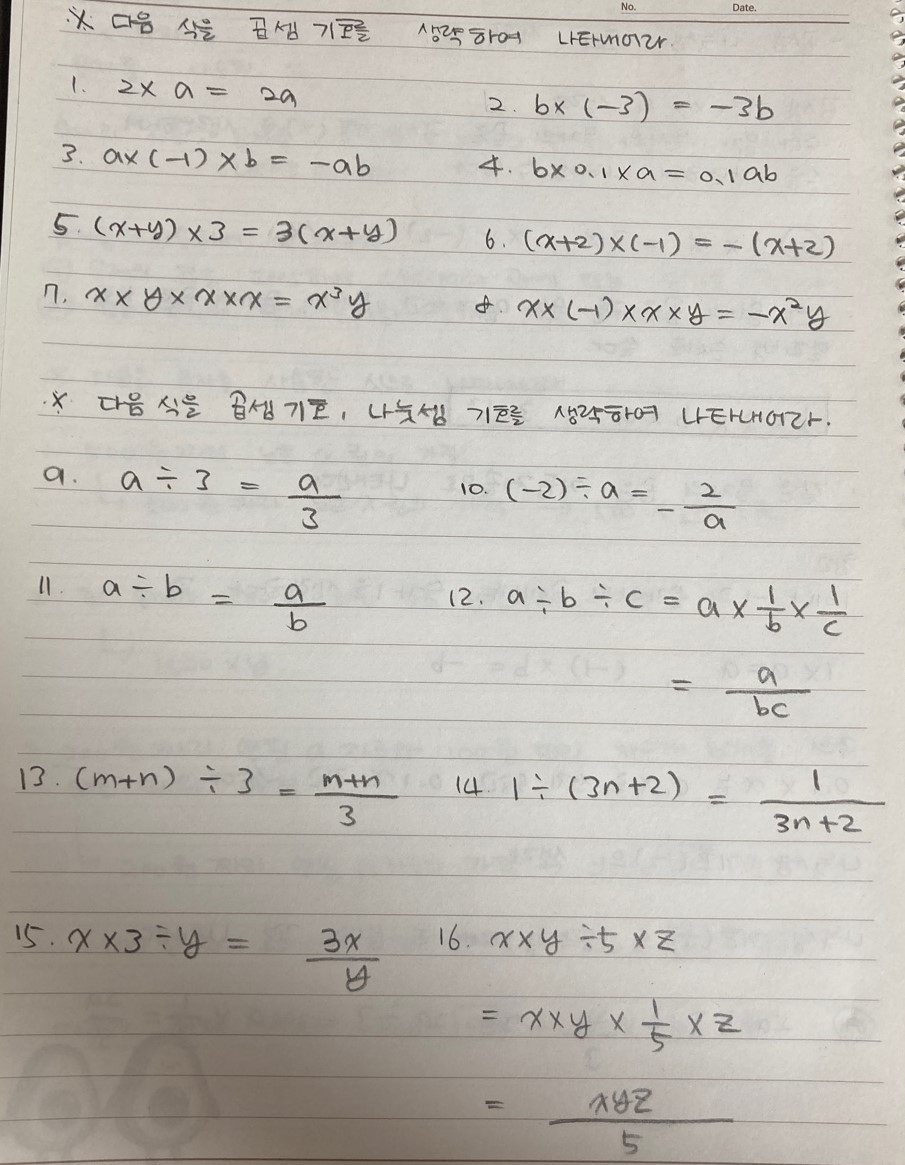 No. Date.
※ 다음 식을 곱셈 기호를 생략하여 나타내어라.
1. 2× a = 2a 2. b× (-3) = -3b
3. a×(-1)×b = -ab 4. b×0.1×a = 0.1ab
5. (x+y)×3 = 3(x+y) 6. (x+2)×(-1) = -(x+2)
7. x×y×x×x = x³y 8. x×(-1)×x×y = -x²y
※ 다음 식을 곱셈 기호, 나눗셈 기호를 생략하여 나타내어라.
9. a÷3 = a/3 10. (-2)÷a = -2/a
11. a÷b = a/b 12. a÷b÷c = a×1/b×1/c
= a/bc
13. (m+n) ÷3 = m+n/3 14. 1÷(3n+2) = 1/3n+2
15. x×3÷y = 3x/y 16. x×y÷5×z
= x×y×1/5×z
= xyz/5